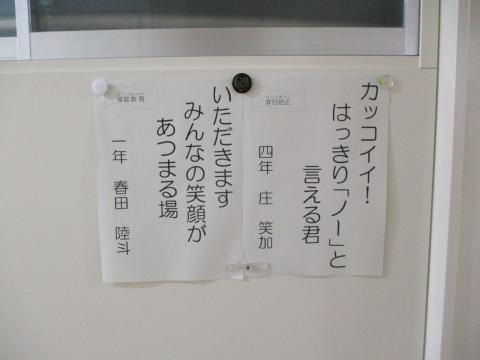 非行防止
カッコイイ!
はっきり「ノー」と
言える君
四年 庄 笑加
家庭教育
いただきます
みんなの笑顔が
あつまる場
一年 春田 陸斗